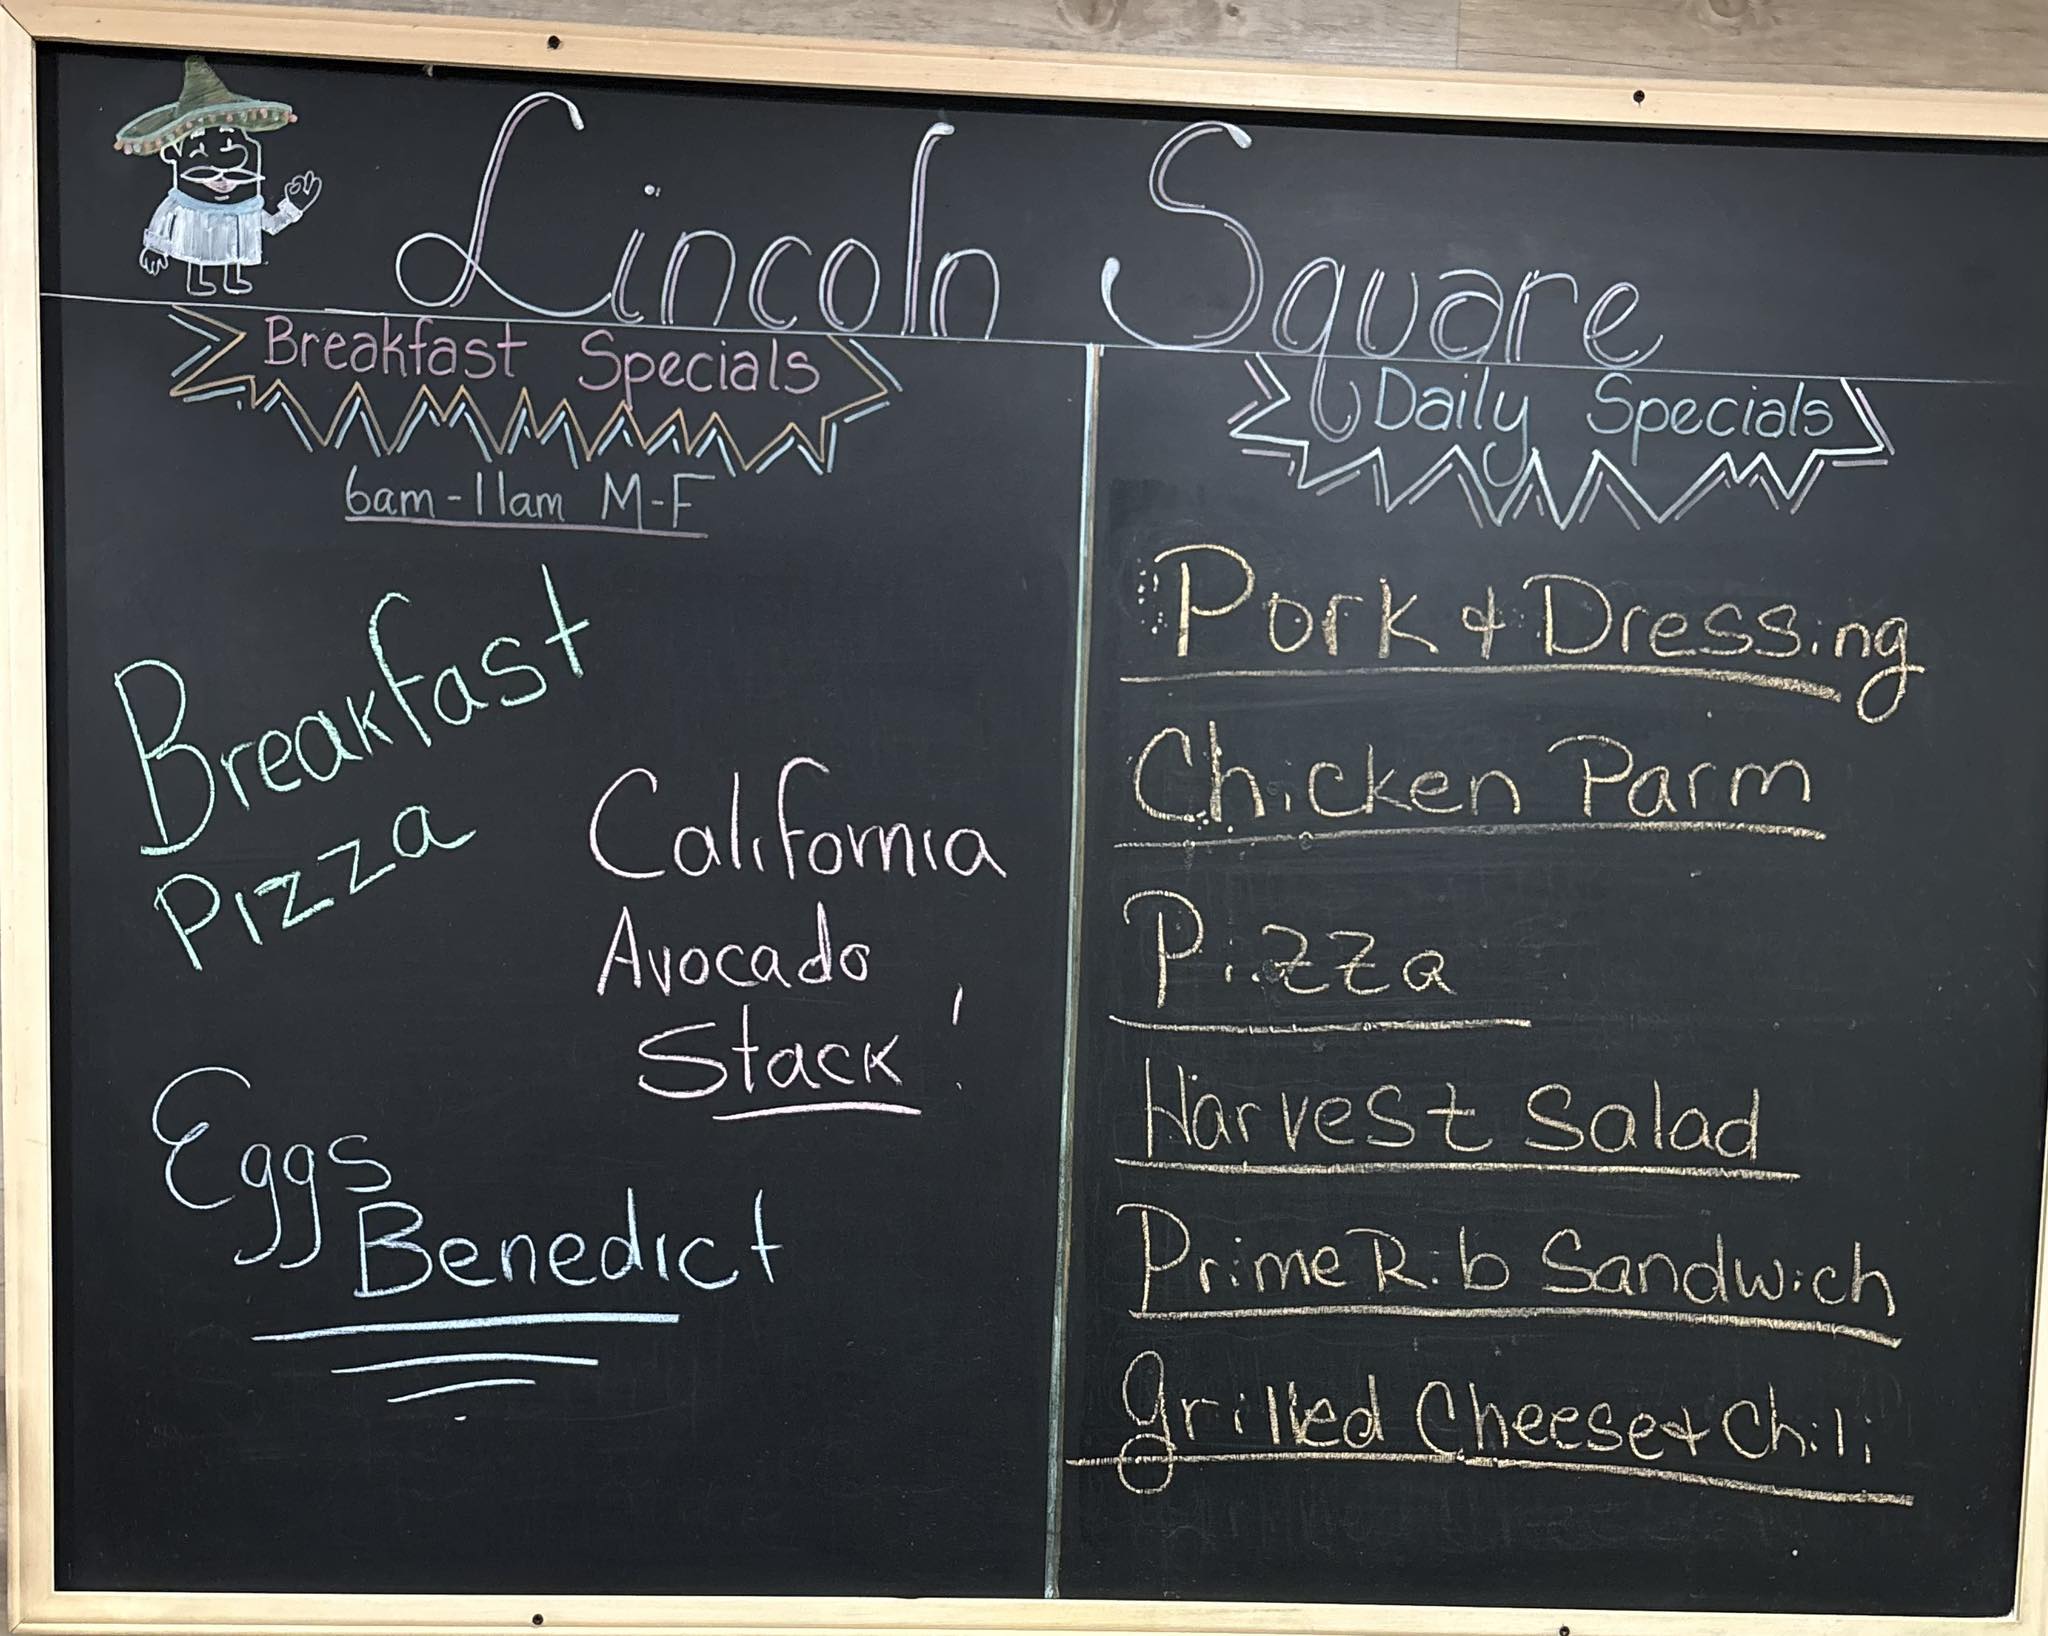 Lincoln Square
Breakfast Specials
6am-11am M-F
Breakfast
Pizza
California
Avocado
Stack!
Eggs
Benedict
Daily Specials
Pork & Dressing
Chicken Parm
Pizza
Harvest Salad
Prime Rib Sandwich
grilled Cheese & Chili